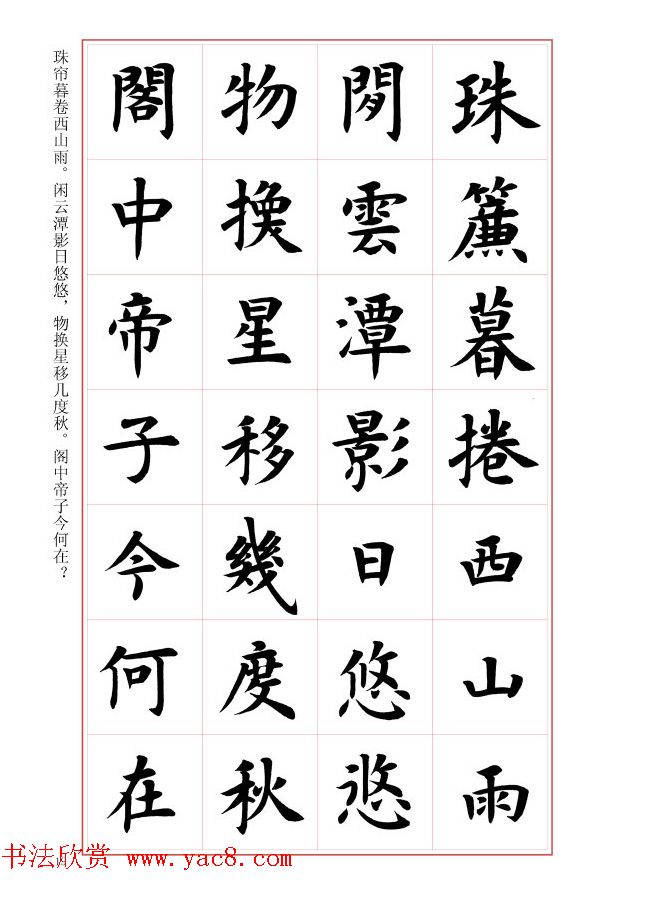 珠簾暮捲西山雨
閒雲潭影日悠悠
物換星移幾度秋
閣中帝子今何在
珠帘暮卷西山雨。闲云潭影日悠悠，物换星移几度秋。阁中帝子今何在？
书法欣赏 www.yac8.com